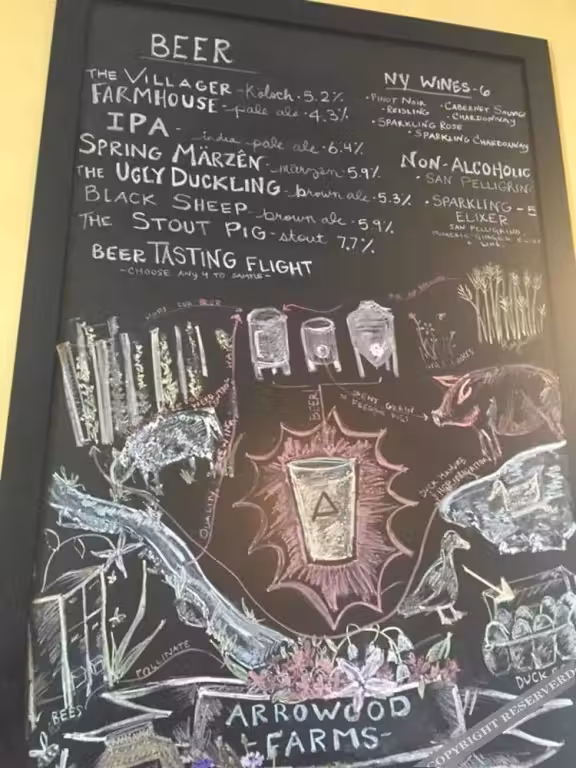 BEER
THE VILLAGER - Kolsch · 5.2%
FARMHOUSE - pale ale · 4.3%
IPA - india pale ale · 6.4%
SPRING MÄRZÊN - märzen · 5.9%
THE UGLY DUCKLING - brown ale · 5.3%
BLACK SHEEP - brown ale · 5.9%
THE STOUT PIG - stout 7.7%
BEER TASTING FLIGHT
- CHOOSE ANY 4 TO SAMPLE -
NY WINES - 6
· PINOT NOIR
· CABERNET SAUVAG
· REISLING
· CHARDONNAY
· SPARKLING ROSE
· SPARKLING CHARDONNAY
NON-ALCOHOLIC
· SAN PELLEGRIN
· SPARKLING - 5
ELIXER
SAN PELLEGRINO
HOPS FOR BEER
BEER
SPENT GRAIN
FEEDING PIGS
QUALITY
DUCK MANURE
POLLINATE
BEES
DUCK
ARROWOOD
- FARMS -
COPYRIGHT RESERVED